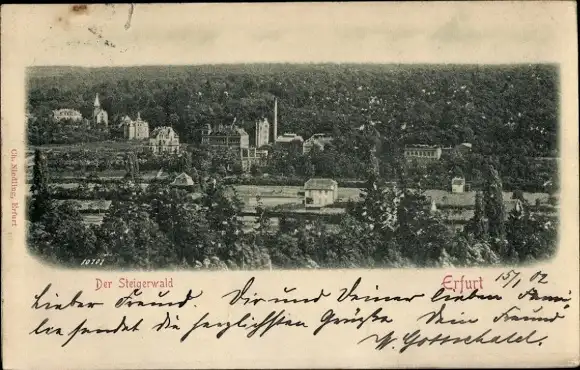 Ch. Städtling, Erfurt
10707
Der Steigerwald
Erfurt
15/7 02
Lieber Freund, Dir und Deiner lieben Fami
lie sendet die herzlichsten Grüße Dein Freund
W. Gottschaldt.